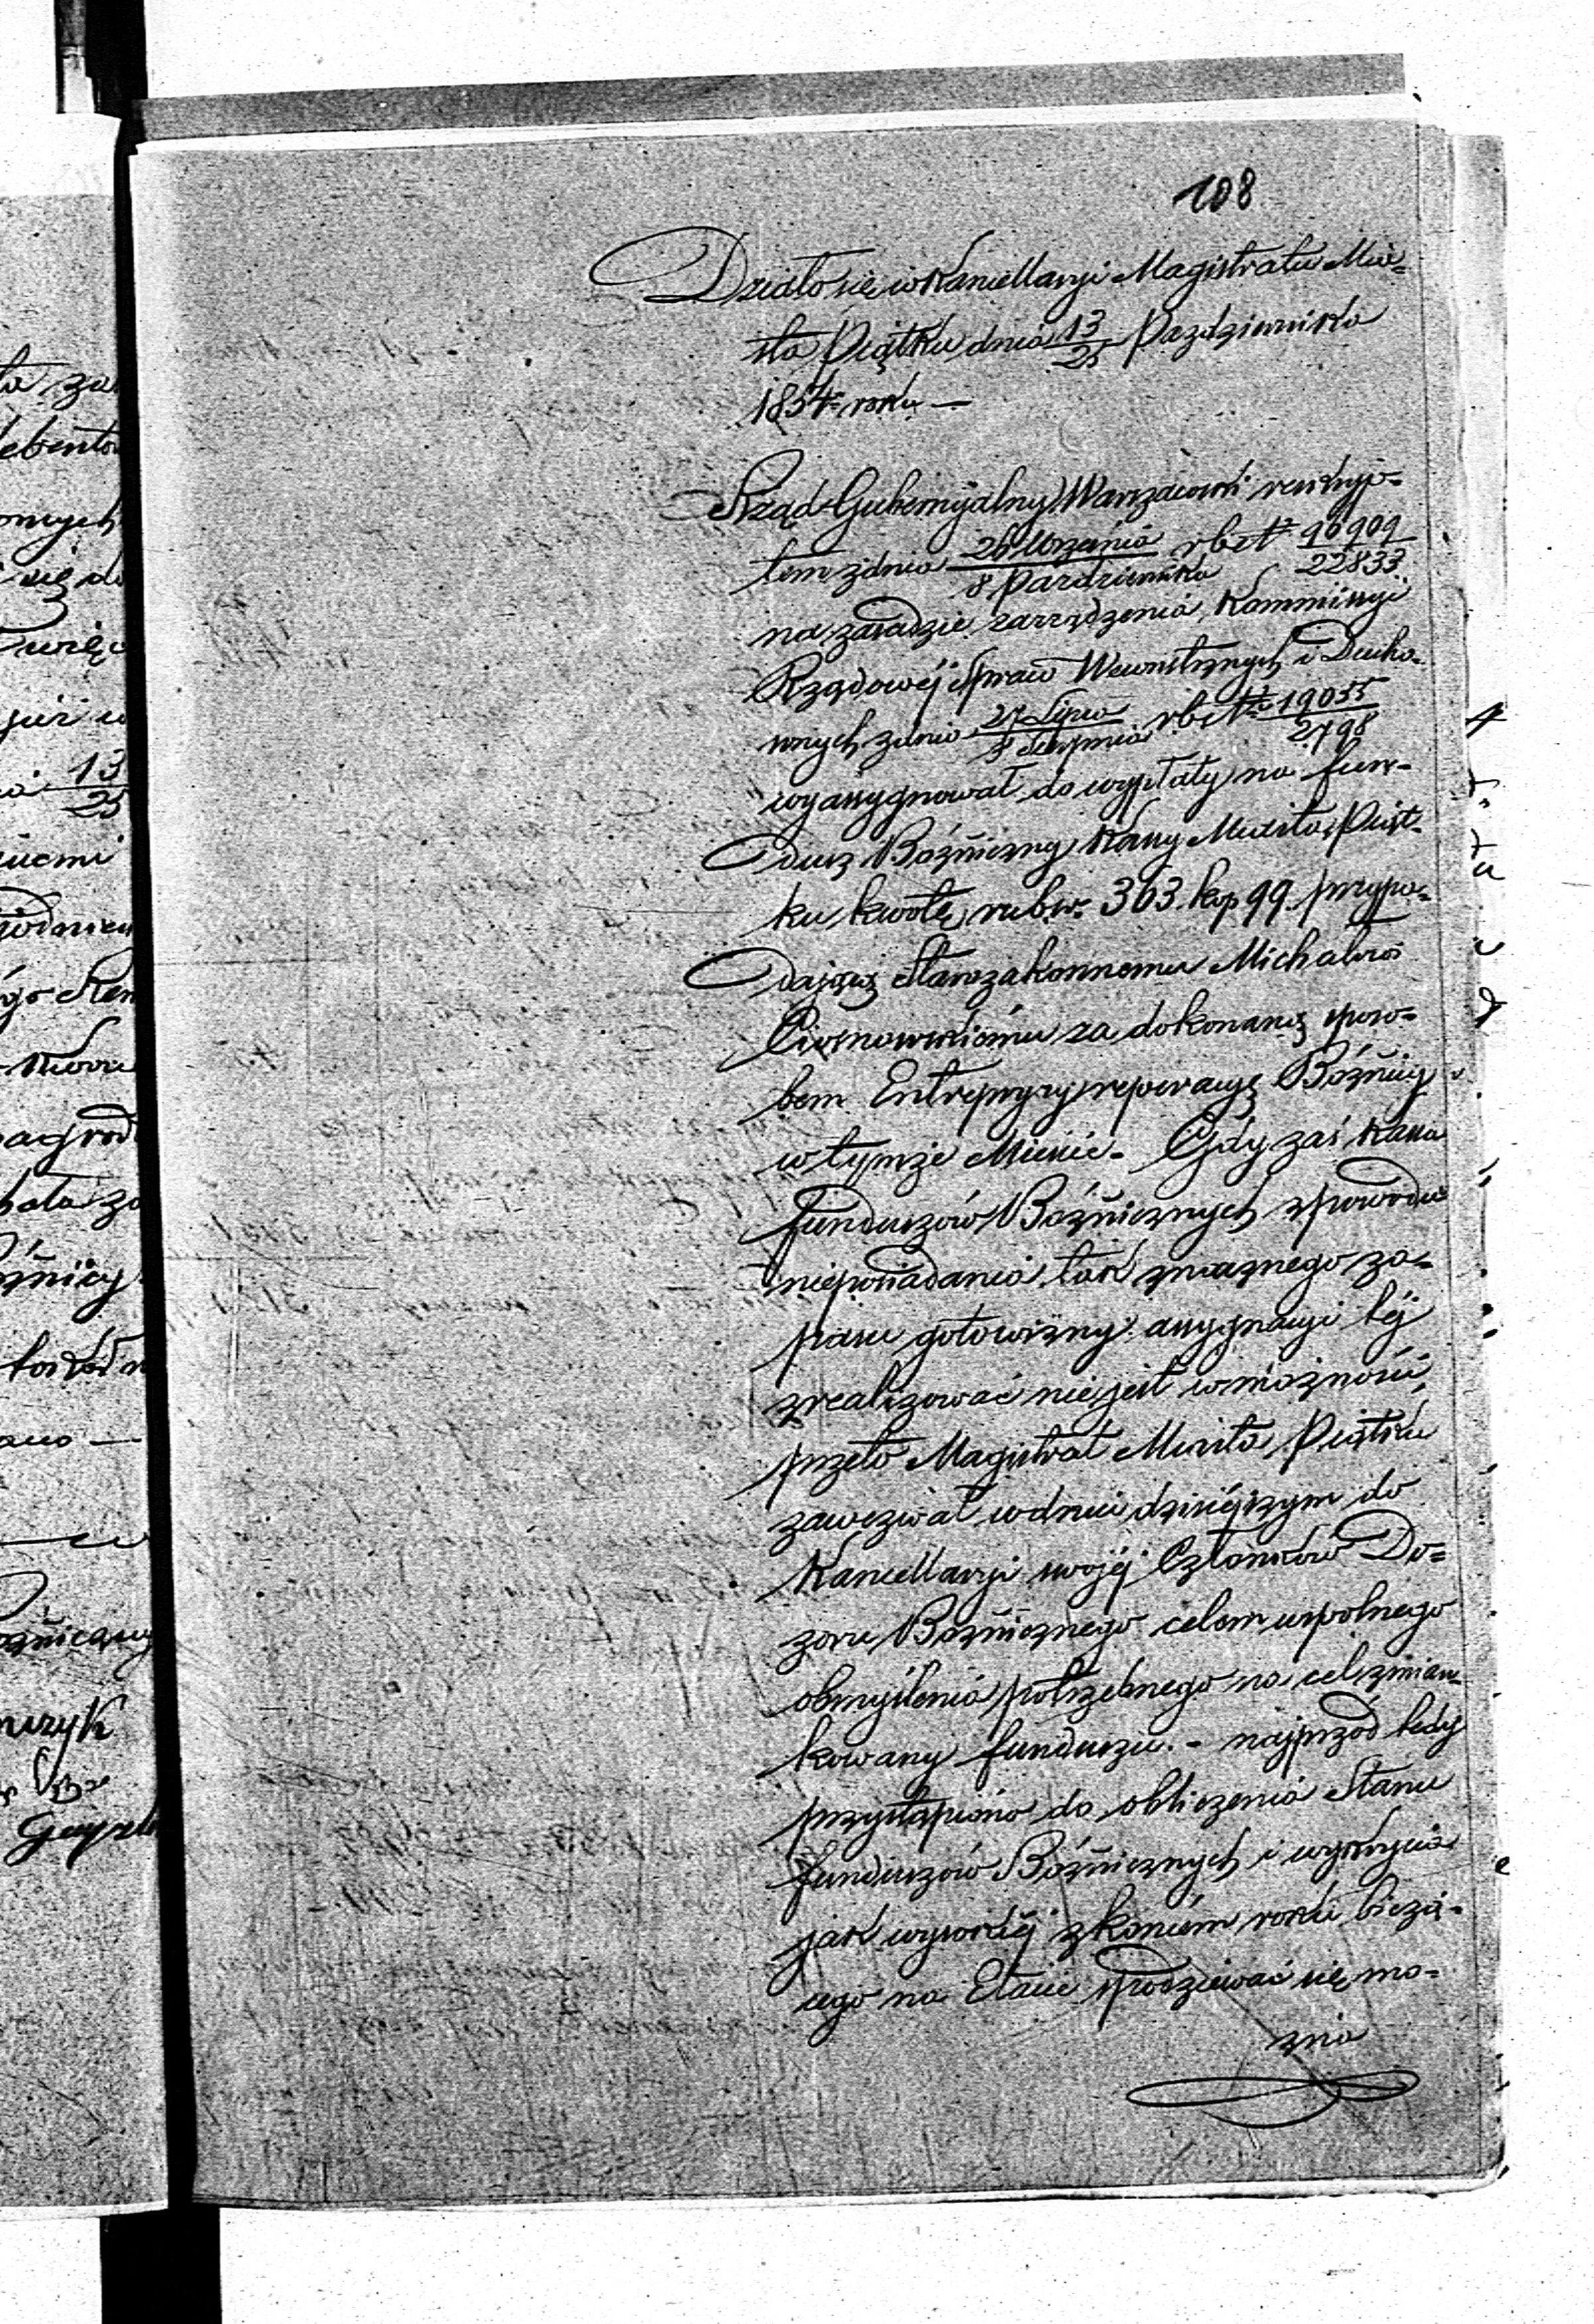 108
Działo się w Kancellaryi Magistratu Mia=
sta Piątku dnia 13/25 Pazdziernika
1854 roku —
Rząd Gubernijalny Warszawski reskryp=
tem z dnia 26 Września / 8 Pazdziernika r b et N 96909/22833
na zasadzie zarządzenia Kommissyi
Rządowéj Spraw Wewnętrznych i Ducho=
wnych z dnia 27 Lipca / 8 Sierpnia r b et N 19055/2798
wyassygnował do wypłaty na fun=
dusz Bóżniczny Kassy Miasta Piąt=
ku kwotę rubsr. 303. kop 99. przypa=
dającą Starozakonnemu Michałowi
Ciosnowskiemu za dokonaną sposo=
bem Entrepryzy reperacyę Bóźnicy
w tymże Mieście. Gdy zaś Kassa
Funduszów Bóżnicznych z powodu
nieposiadania tak znacznego za=
pasu gotowizny assygnacyi téj
zrealizować nie jest w możności,
przeto Magistrat Miasta Piątku
zawezwał w dniu dzisiéjszym do
Kancellaryi swojéj Członków Do=
zoru Bóżnicznego celem wspólnego
obmyślenia potrzebnego na cel zmian=
kowany funduszu. - najprzód tedy
przystąpiono do obliczenia Stanu
funduszów Bóżnicznych i wykrycia
jak wysokiéj z końcem roku bieżą=
cego na Etacie spodziewać się mo=
żna